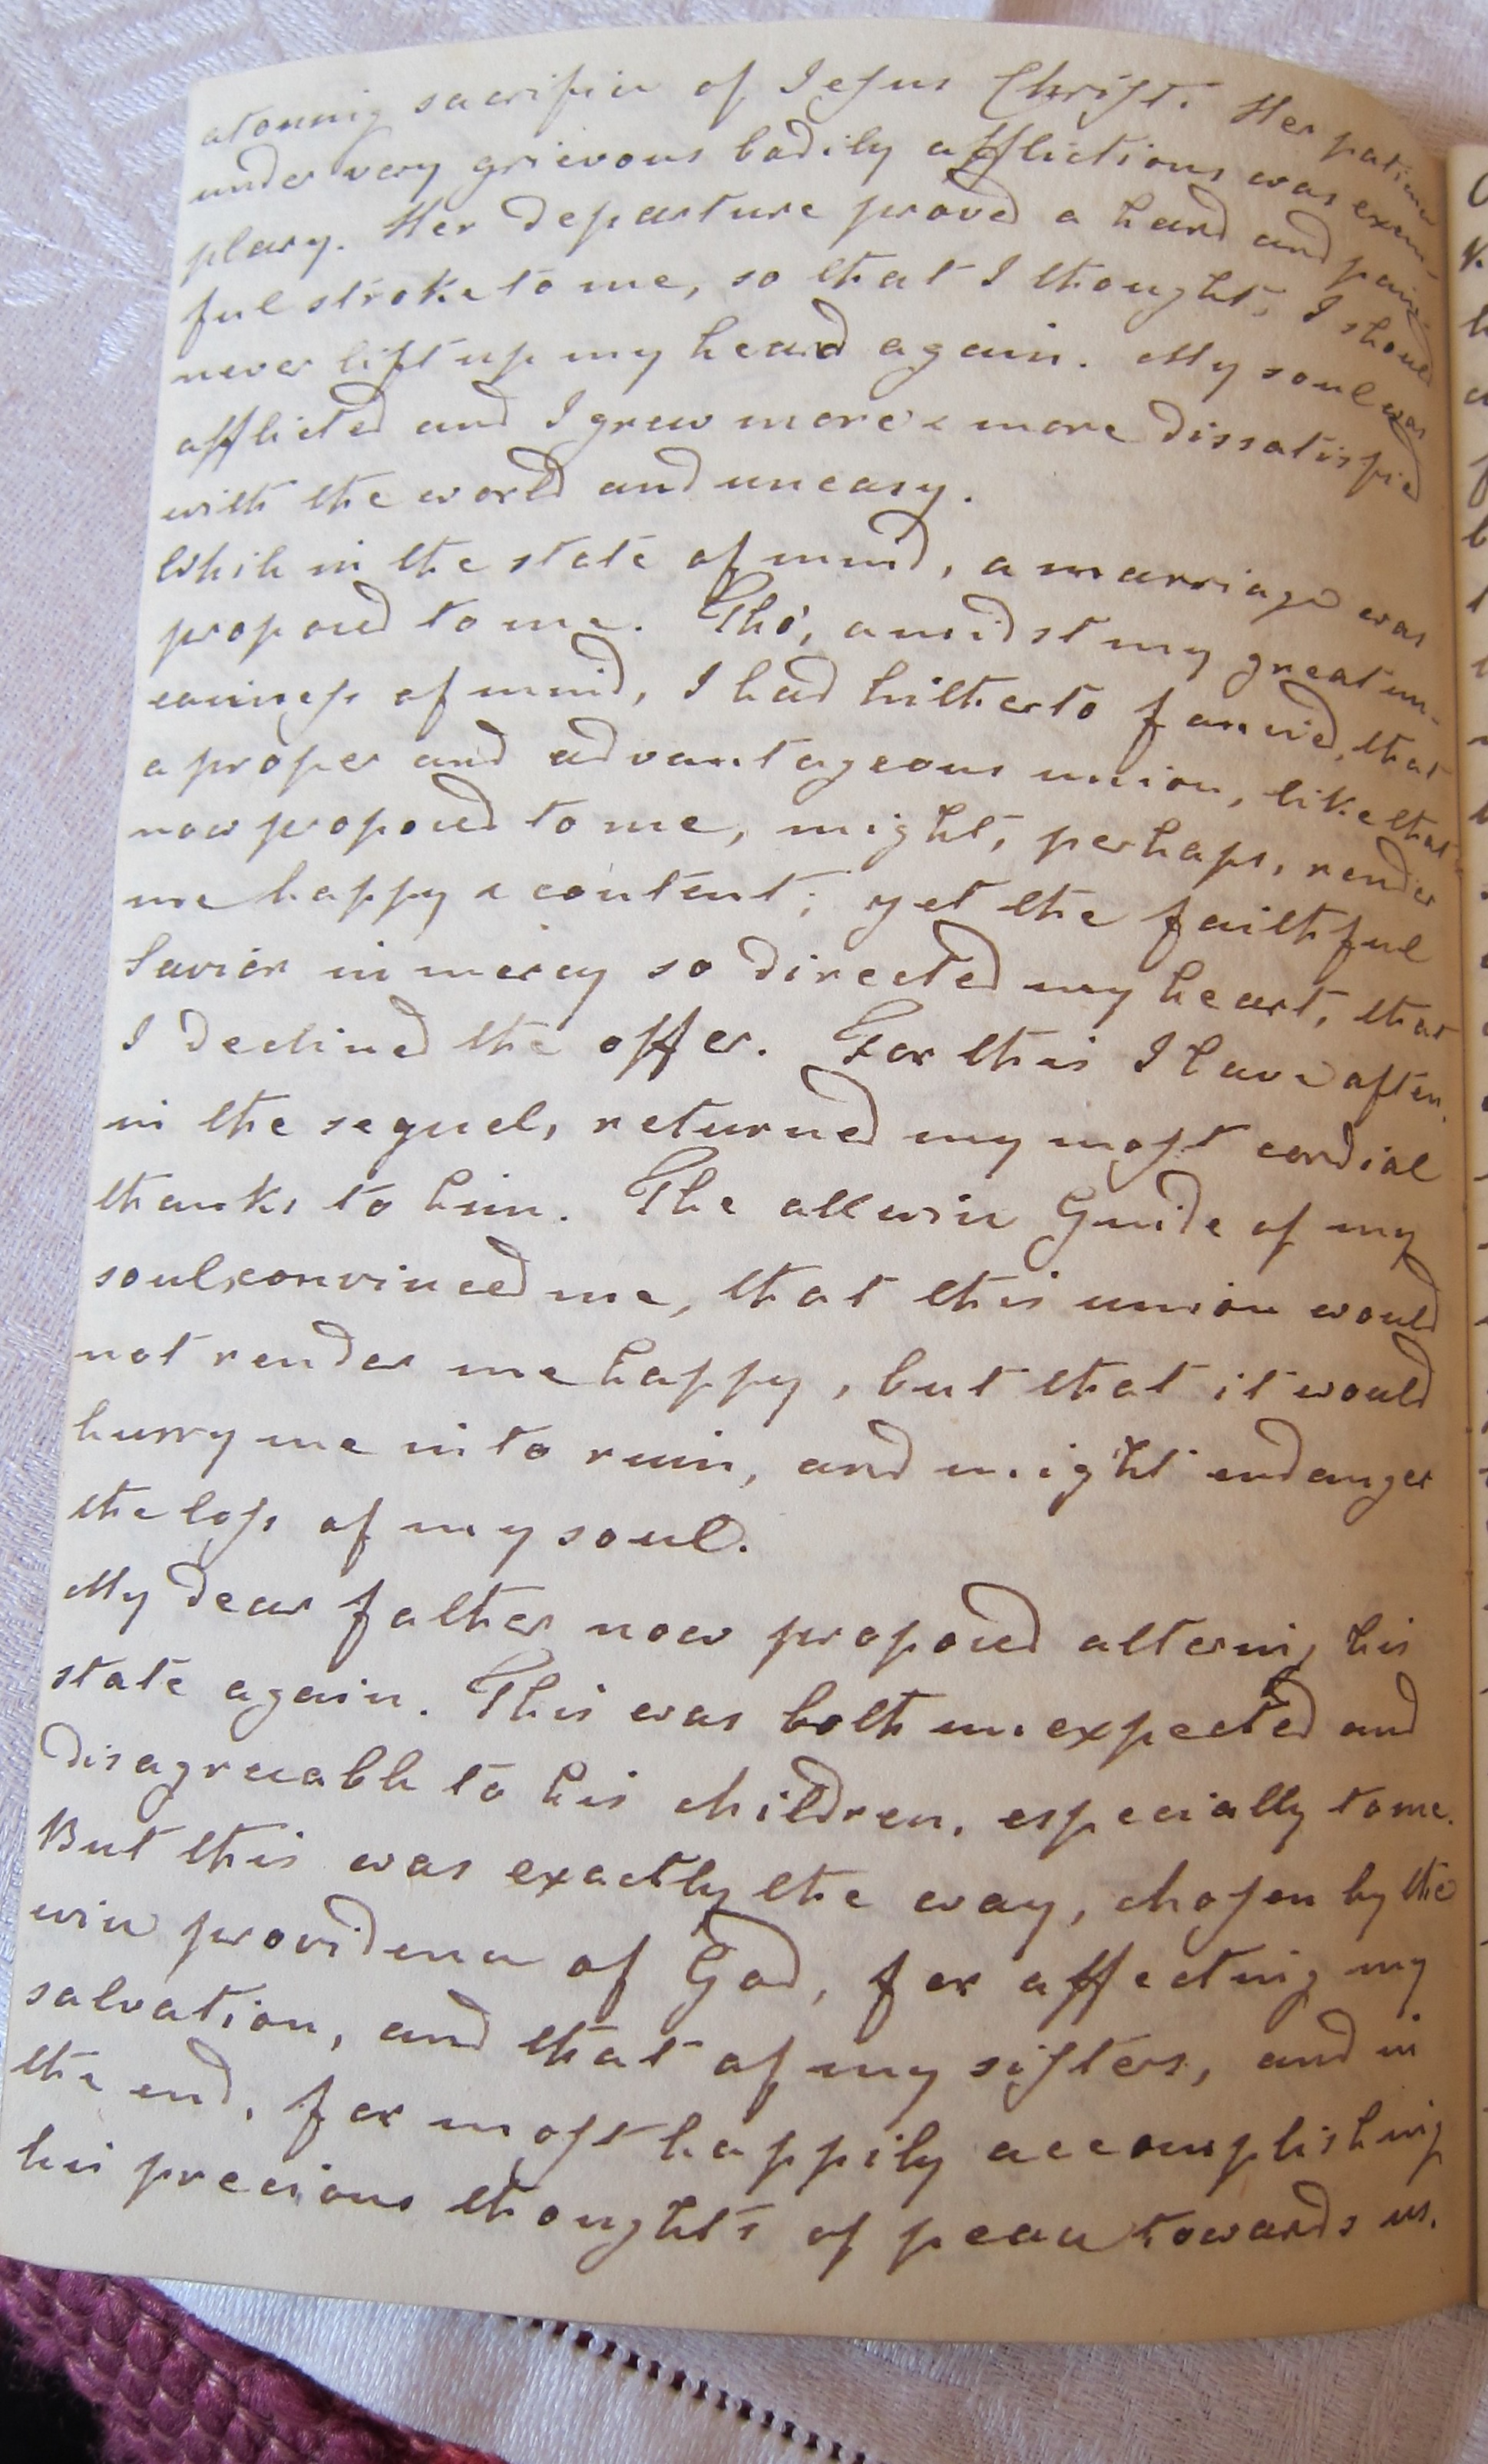 atoning sacrifice of Jesus Christ. Her patience
under very grievous bodily afflictions was exem-
plary. Her departure proved a hard and pain-
ful stroke to me, so that I thought, I should
never lift up my head again. My soul was
afflicted and I grew more & more dissatisfied
with the world and uneasy.
While in the state of mind, a marriage was
proposed to me. Tho', amidst my great un-
easiness of mind, I had hitherto fancied, that
a proper and advantageous union, like that
now proposed to me, might, perhaps, render
me happy & content; yet the faithful
Savior in mercy so directed my heart, that
I declined the offer. For this I have often,
in the sequel, returned my most cordial
thanks to him. The allwise Guide of my
soul, convinced me, that this union would
not render me happy, but that it would
hurry me into ruin, and might endanger
the loss of my soul.
My dear father now proposed altering his
state again. This was both unexpected and
disagreeable to his children, especially to me.
But this was exactly the way, chosen by the
wise providence of God, for affecting my
salvation, and that of my sisters, and in
the end, for most happily accomplishing
his precious thoughts of peace towards us.